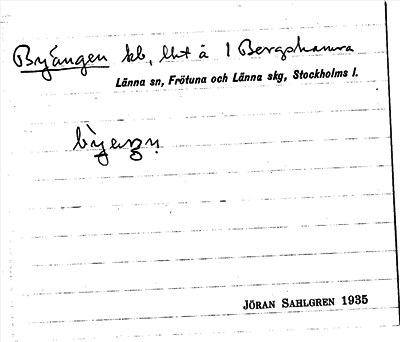 Byängen bb, lht å 1 Bergshamra
Länna sn, Frötuna och Länna skg, Stockholms l.
JÖRAN SAHLGREN 1935